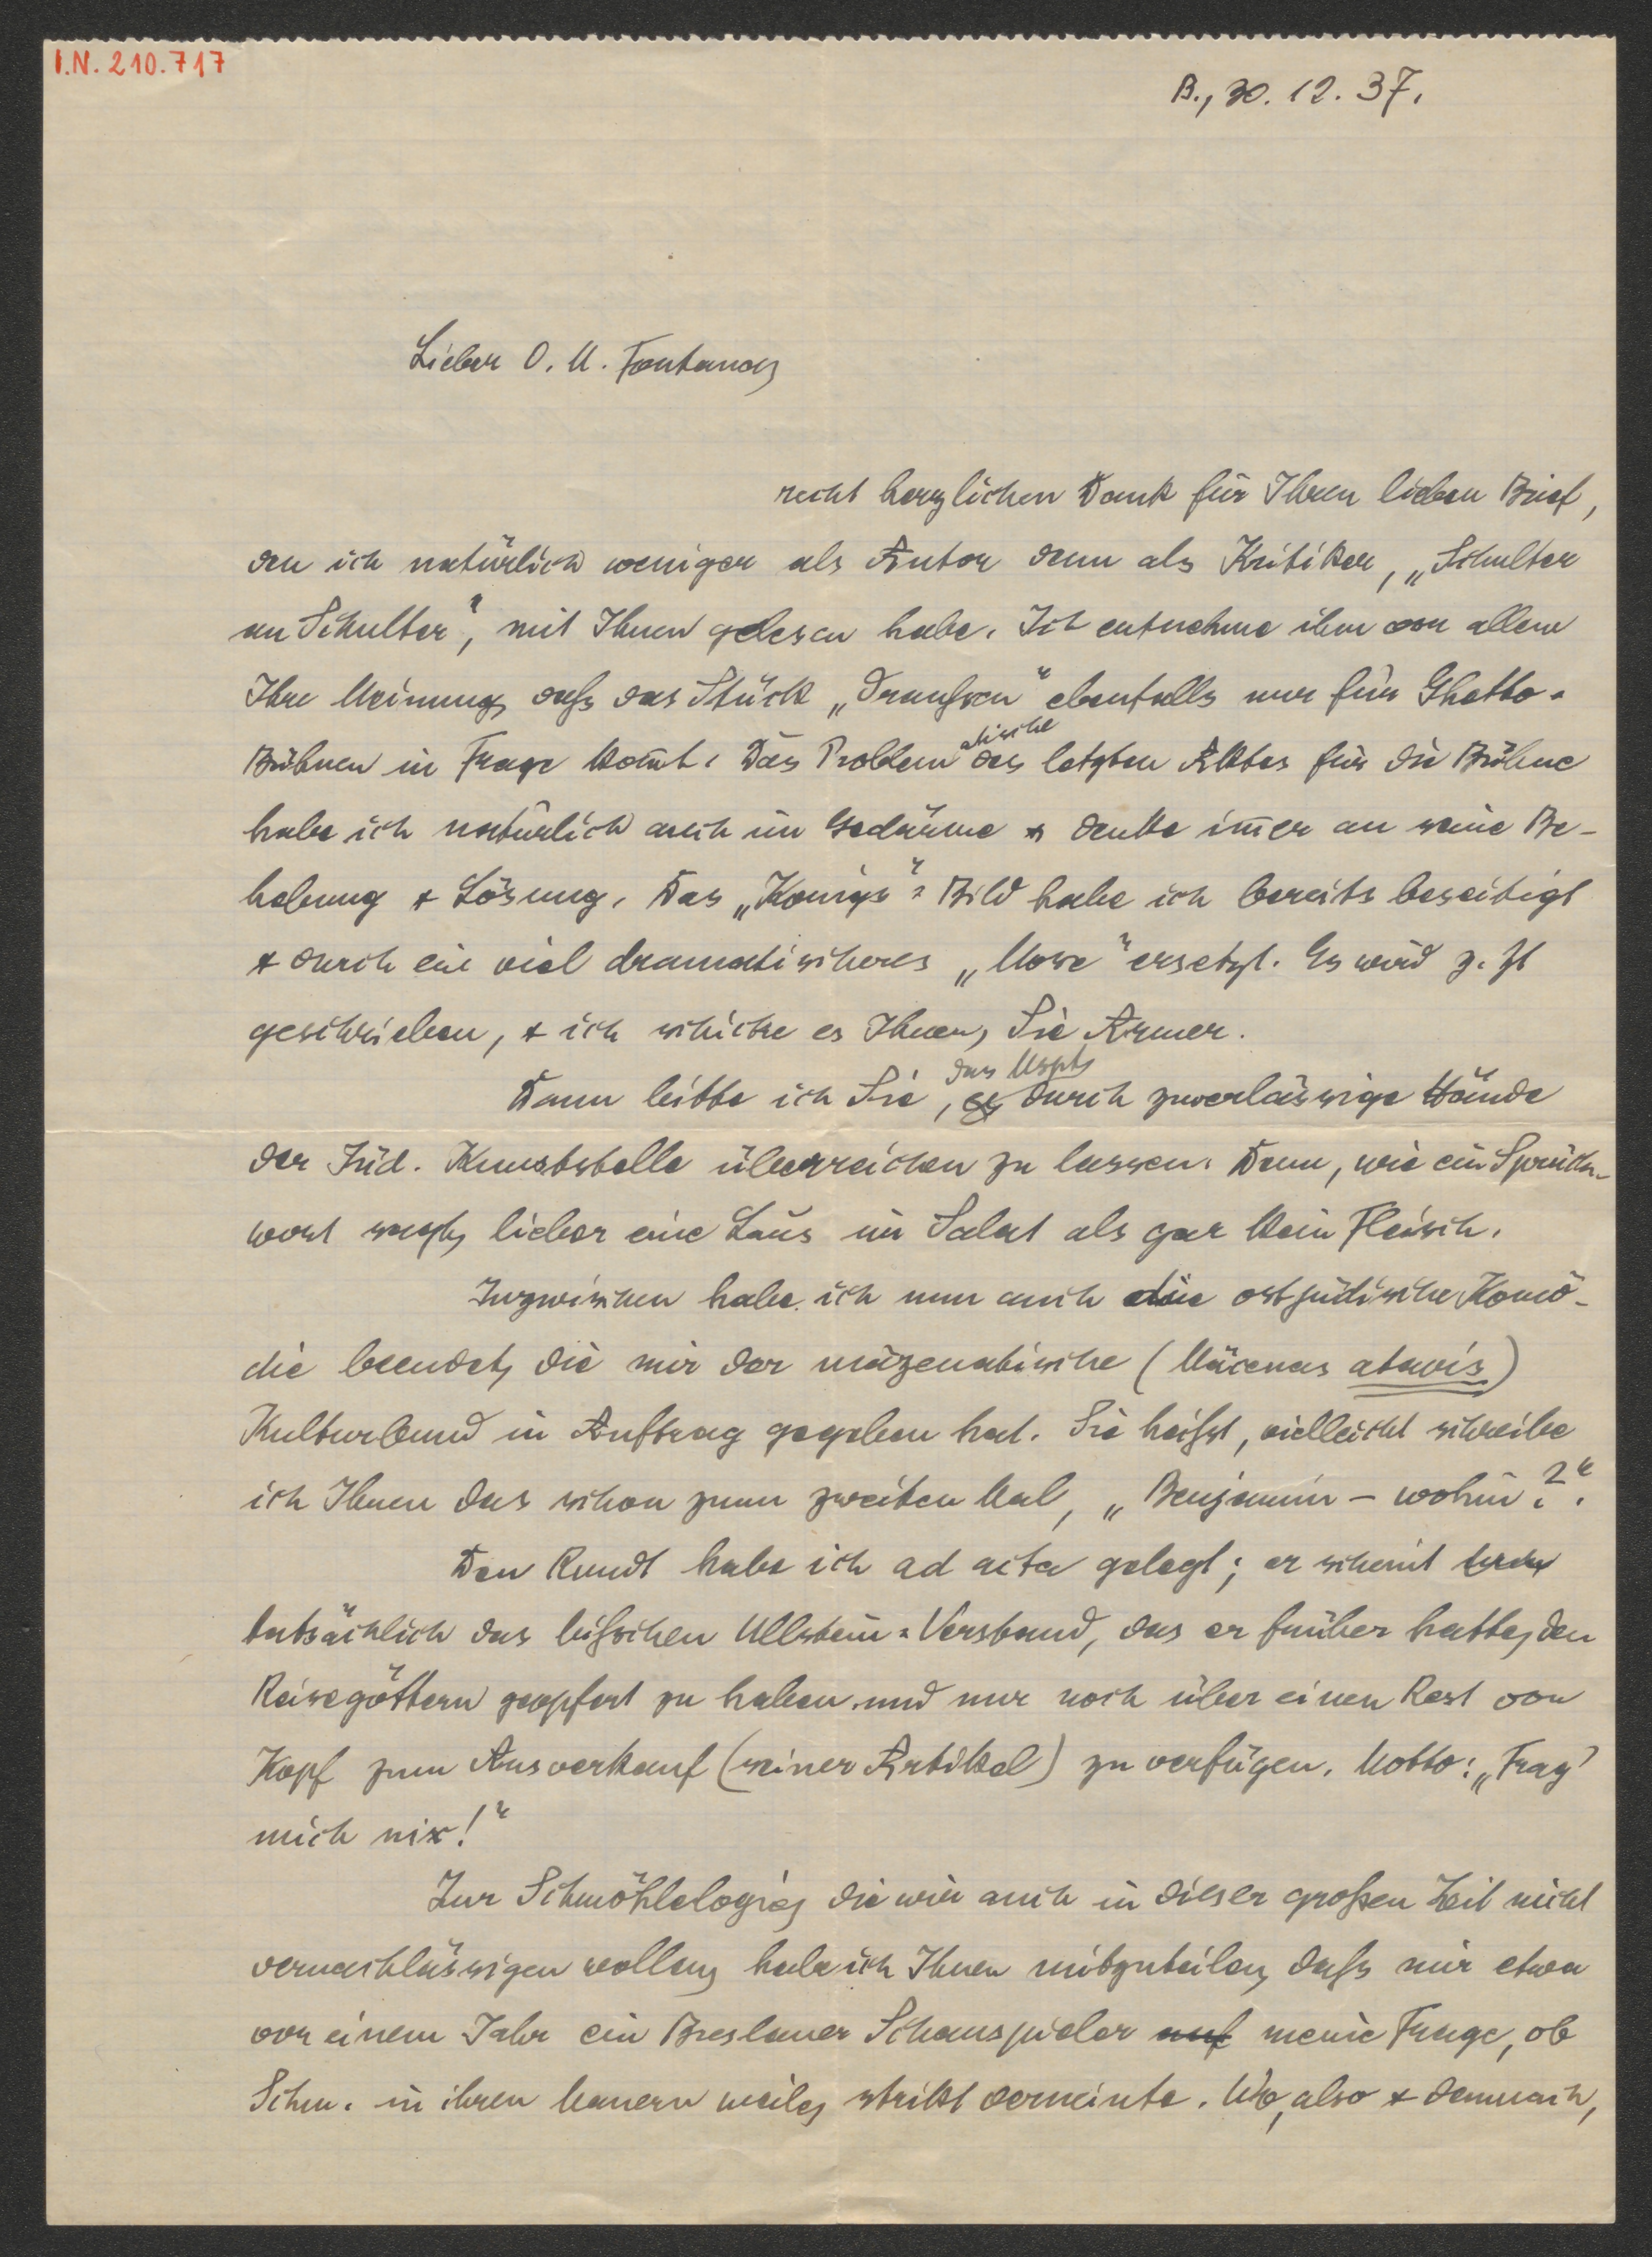 I.N. 210.717
B., 30. 12. 37.
Lieber O. M. Fontana,
recht herzlichen Dank für Ihren lieben Brief,
den ich natürlich weniger als Autor denn als Kritiker, „Schulter
an Schulter", mit Ihnen gelesen habe. Ich entnehme ihm vor allem
Ihre Meinung, daß das Stück „draußen" ebenfalls nur für Ghetto-
Bühnen in Frage kommt. Das Problematische des letzten Aktes für die Bühne
habe ich natürlich auch im Gedärme & denke immer an seine Be-
hebung & Lösung. Das „Königs"-Bild habe ich bereits beseitigt
& durch ein viel dramatischeres „Mose" ersetzt. Es wird z. Zt
geschrieben, & ich schicke es Ihnen, Sie Armer.
Dann bitte ich Sie, es das Mspt, durch zuverlässige Hände
der Jüd. Kunststelle überreichen zu lassen. Denn, wie ein Sprich-
wort sagt, lieber eine Laus im Salat als gar kein Fleisch.
Inzwischen habe ich nun auch die ostjüdische Komö-
die beendet, die mir der mäzenatische (Mäcenas atavis)
Kulturbund in Auftrag gegeben hat. Sie heißt, vielleicht schreibe
ich Ihnen das schon zum zweiten Mal, „Benjamin – wohin?".
Den Rundt habe ich ad acta gelegt; er scheint
tatsächlich das bißchen Ullstein-Verstand, das er früher hatte, den
Reisegöttern geopfert zu haben und nur noch über einen Rest von
Kopf zum Ausverkauf (seiner Artikel) zu verfügen. Motto: „Frag'
mich nix!"
Zur Schmöhlelogie, die wir auch in dieser großen Zeit nicht
vernachlässigen wollen, habe ich Ihnen mitzuteilen, daß mir etwa
vor einem Jahr ein Breslauer Schauspieler auf meine Frage, ob
Schm. in ihren Mauern weile, strikt verneinte. Wo, also & demnach,